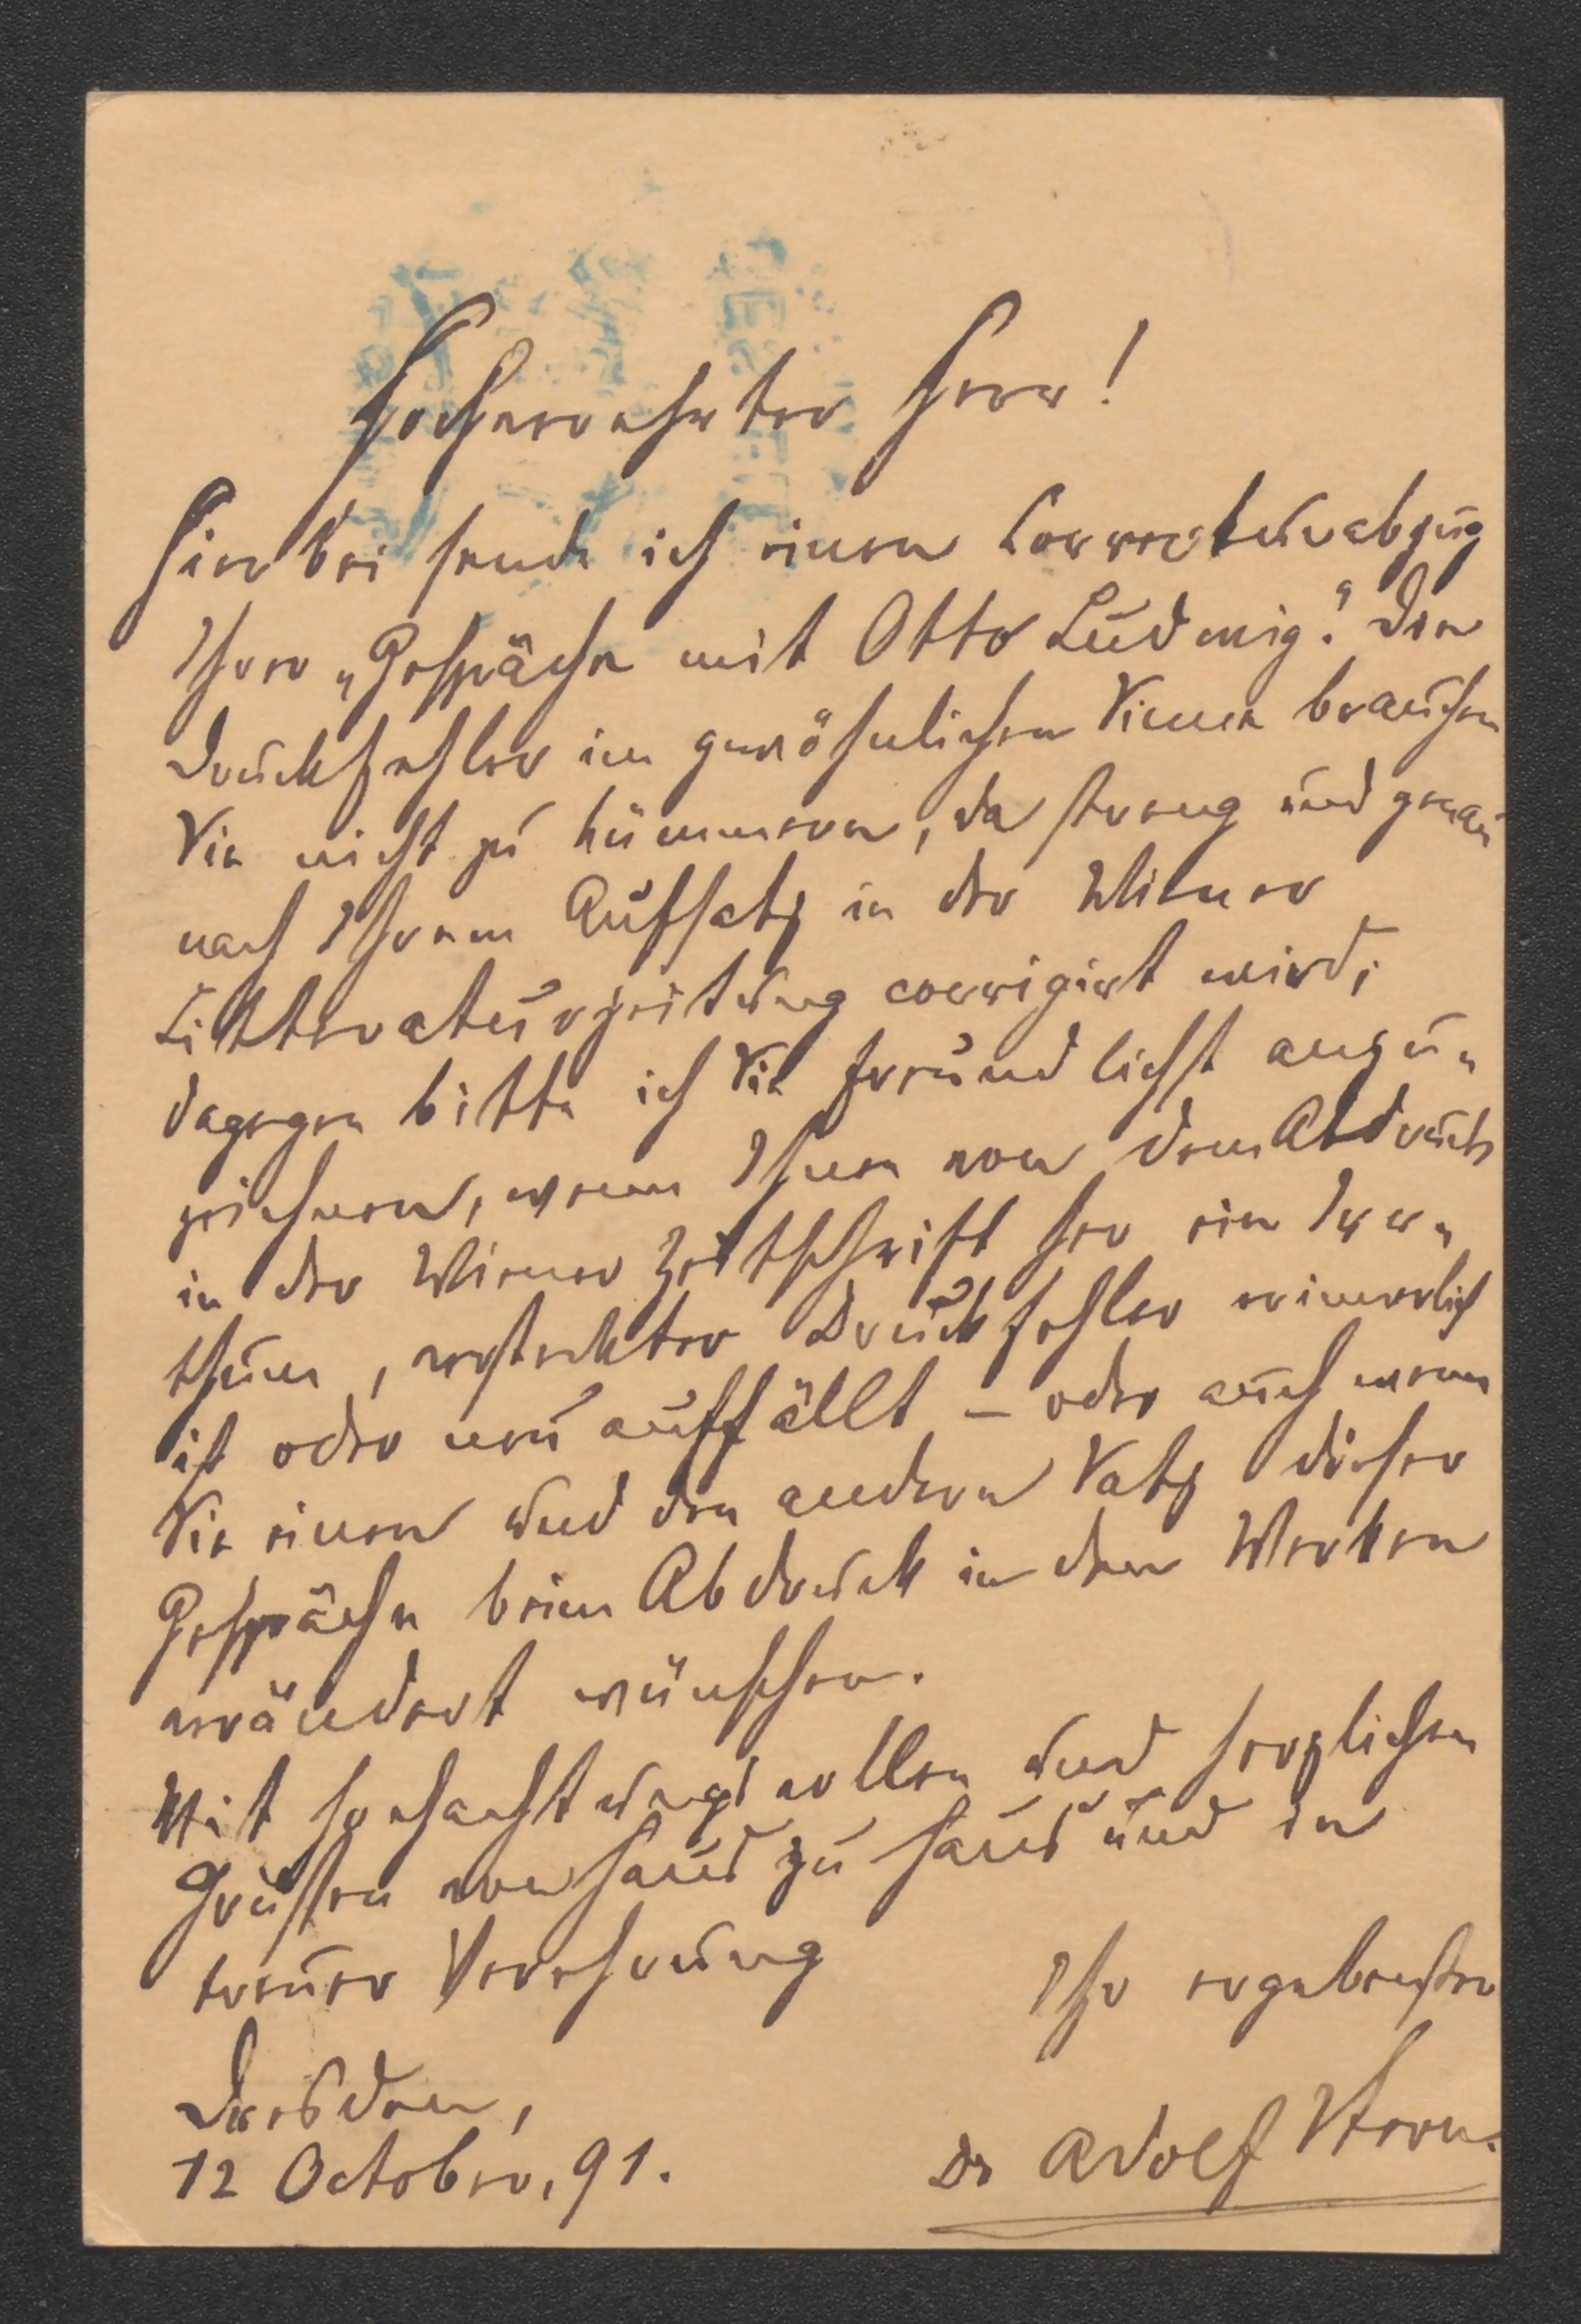 Hochverehrter Herr!
Hierbei sende ich einen Correcturabzug
Ihrer „Gespräche mit Otto Ludwig." Den
Druckfehler im gewöhnlichen Sinne brauchen
Sie nicht zu kümmern, da streng und genau
nach Ihrem Aufsatz in der Wiener
Litteraturzeitung corrigirt wird;
dagegen bitte ich Sie freundlichst anzu-
zeichnen, wenn Ihnen von dem Abdruck
in der Wiener Zeitschrift her ein Irr-
thum, versteckter Druckfehler erinnerlich
ist oder neu auffällt – oder auch wenn
Sie einen und den andern Satz dieser
Gespräche beim Abdruck in den Werken
verändert wünschen.
Mit hochachtungsvollen und herzlichen
Grüßen von Haus zu Haus und in
treuer Verehrung
Ihr ergebenster
Dresden,
12 October, 91.
Dr Adolf Stern.